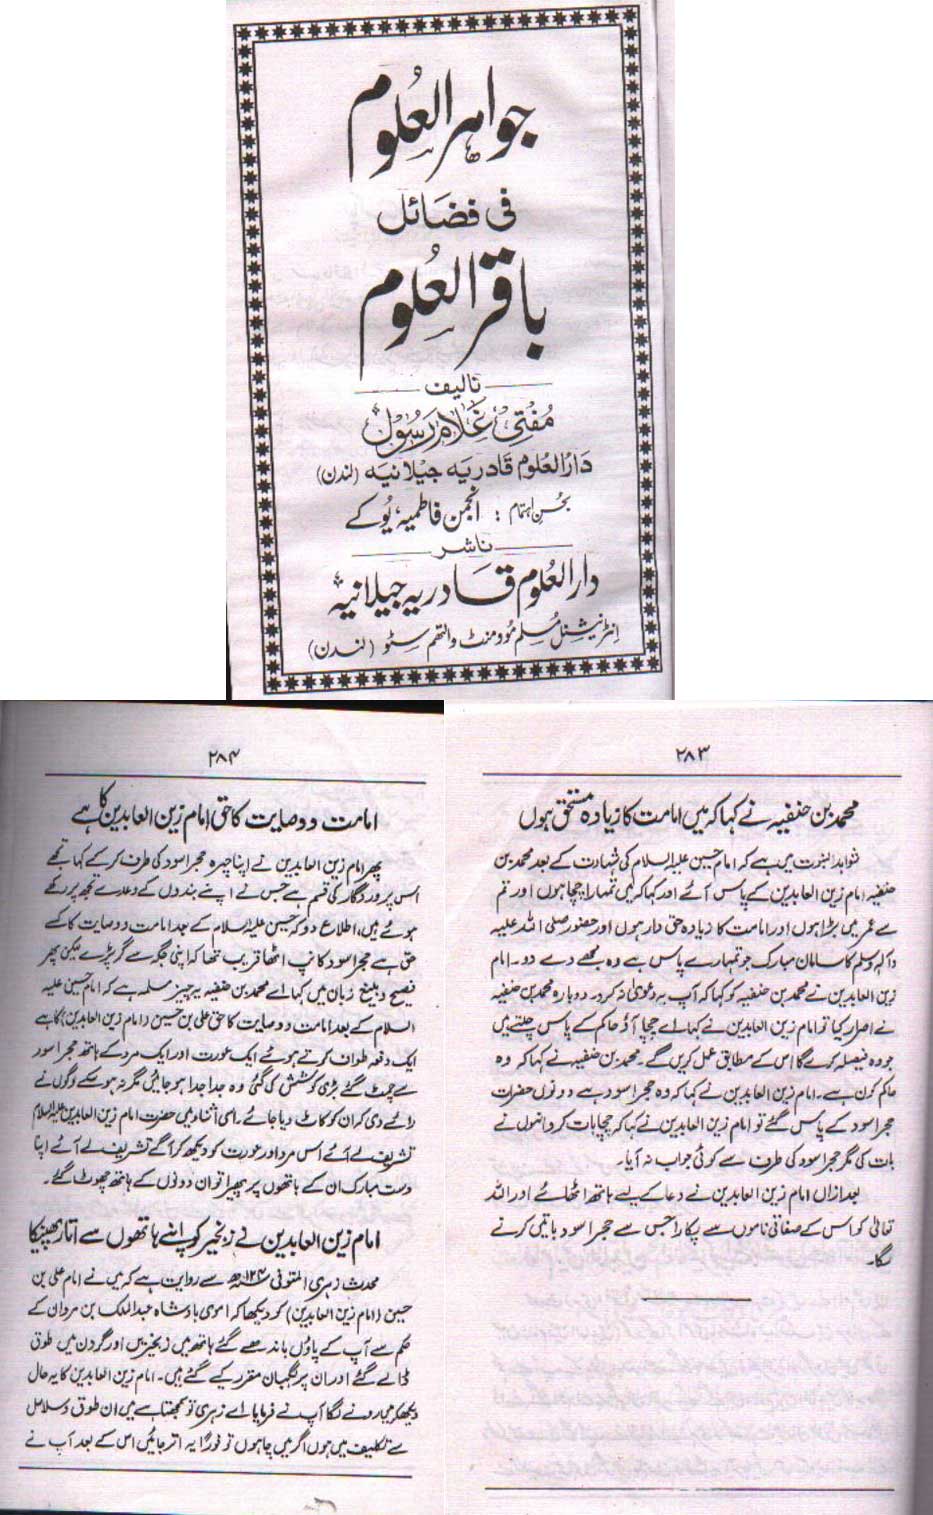 جواہر العلوم
فی فضائل
باقر العلوم
تالیف
مفتی غلام رسول
دارالعلوم قادریہ جیلانیہ (لندن)
بحسن اہتمام : انجمن فاطمیہ یوکے
ناشر
دارالعلوم قادریہ جیلانیہ
انٹرنیشنل مسلم موومنٹ والتھم سٹو (لندن)
۲۸۳
محمد بن حنفیہ نے کہا کہ میں امامت کا زیادہ مستحق ہوں
شواہد النبوت میں ہے کہ امام حسین علیہ السلام کی شہادت کے بعد محمد بن
حنفیہ امام زین العابدین کے پاس آئے اور کہا کہ میں تمہارا چچا ہوں اور تم
سے عمر میں بڑا ہوں اور امامت کا زیادہ حق دار ہوں اور حضور صلی اللہ علیہ
وآلہ وسلم کا سامان مبارک جو تمہارے پاس ہے وہ مجھے دے دو۔ امام
زین العابدین نے محمد بن حنفیہ کو کہا کہ آپ یہ دعویٰ نہ کرو۔ دوبارہ محمد بن حنفیہ
نے اصرار کیا تو امام زین العابدین نے کہا اے چچا آؤ حاکم کے پاس چلتے ہیں
جو وہ فیصلہ کرے گا اس کے مطابق عمل کریں گے۔ محمد بن حنفیہ نے کہا کہ وہ
حاکم کون ہے۔ امام زین العابدین نے کہا کہ وہ حجر اسود ہے دونوں حضرات
حجر اسود کے پاس گئے تو امام زین العابدین نے کہا کہ چچا بات کرو انہوں نے
بات کی مگر حجر اسود کی طرف سے کوئی جواب نہ آیا۔
بعد ازاں امام زین العابدین نے دعا کے لیے ہاتھ اٹھائے اور اللہ
تعالیٰ کو اس کے صفاتی ناموں سے پکارا جس سے حجر اسود باتیں کرنے
لگا۔
۲۸۴
امامت و وصایت کا حق امام زین العابدین کا ہے
پھر امام زین العابدین نے اپنا چہرہ حجر اسود کی طرف کر کے کہا تجھے
اس پروردگار کی قسم ہے جس نے اپنے بندوں کے وعدے تجھ پر رکھے
ہوئے ہیں، اطلاع دو کہ حسین علیہ السلام کے بعد امامت و وصایت کا کسے
حق ہے حجر اسود کانپ اٹھا قریب تھا کہ اپنی جگہ سے گر پڑے لیکن پھر
فصیح و بلیغ زبان میں کہا اے محمد بن حنفیہ یہ چیز مسلمہ ہے کہ امام حسین علیہ
السلام کے بعد امامت و وصایت کا حق علی بن حسین (امام زین العابدین) کا ہے
ایک دفعہ طواف کرتے ہوئے ایک عورت اور ایک مرد کے ہاتھ حجر اسود
سے چمٹ گئے بڑی کوشش کی گئی وہ جدا جدا ہو جائیں مگر نہ ہو سکے لوگوں نے
رائے دی کہ ان کو کاٹ دیا جائے۔ اسی اثناء میں حضرت امام زین العابدین علیہ السلام
تشریف لے آئے اس مرد اور عورت کو دیکھ کر آگے تشریف لے آئے اپنا
دست مبارک ان کے ہاتھوں پر پھیرا تو ان دونوں کے ہاتھ چھوٹ گئے۔
امام زین العابدین نے زنجیر کو اپنے ہاتھوں سے اتار پھینکا
محدث زہری المتوفی ۱۲۴ھ سے روایت ہے کہ میں نے امام علی بن
حسین (امام زین العابدین) کو دیکھا کہ اموی بادشاہ عبدالملک بن مروان کے
حکم سے آپ کے پاؤں باندھے گئے ہاتھ میں زنجیریں اور گردن میں طوق
ڈالے گئے اور ان پر نگہبان مقرر کیے گئے ہیں۔ امام زین العابدین کا یہ حال
دیکھ کر میں رونے لگا آپ نے فرمایا اے زہری تو سمجھتا ہے میں ان طوق و سلاسل
سے تکلیف میں ہوں اگر میں چاہوں تو فوراً یہ اتر جائیں اس کے بعد آپ نے